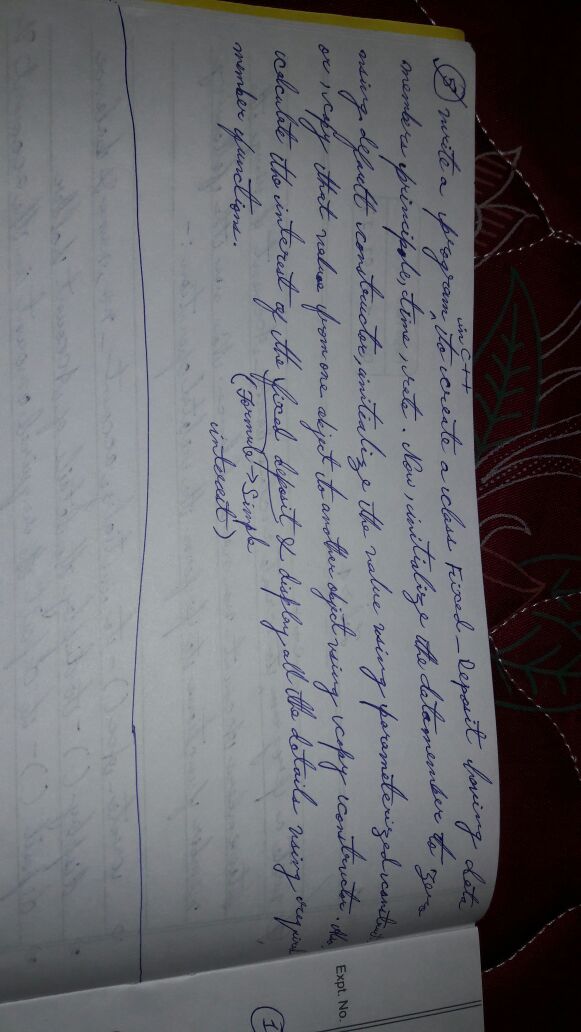 ③ write a program in C++ to create a class Fixed_Deposit having data
members principole, time, rate. Now, initialize the datamember to zero
using default constructor, initialize the value using parameterized construct
or, copy that value from one object to another object using copy constructor. Also,
calculate the interest of the fixed deposit & display all the details using required
member functions.
(Formula → Simple
interest)
Expt. No.
①